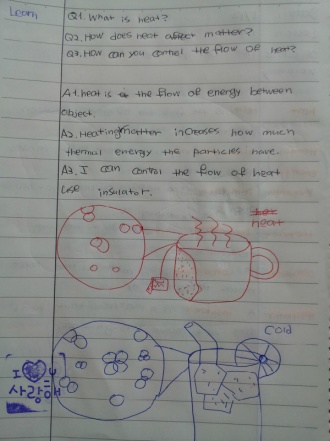 Learn
Q1. What is heat?
Q2. How does heat affect matter?
Q3. How can you control the flow of heat?
A1. heat is the flow of energy between
object.
A2. Heating matter increases how much
thermal energy the particles have.
A3. I can control the flow of heat
use insulator.
heat
Cold
I U
사랑해